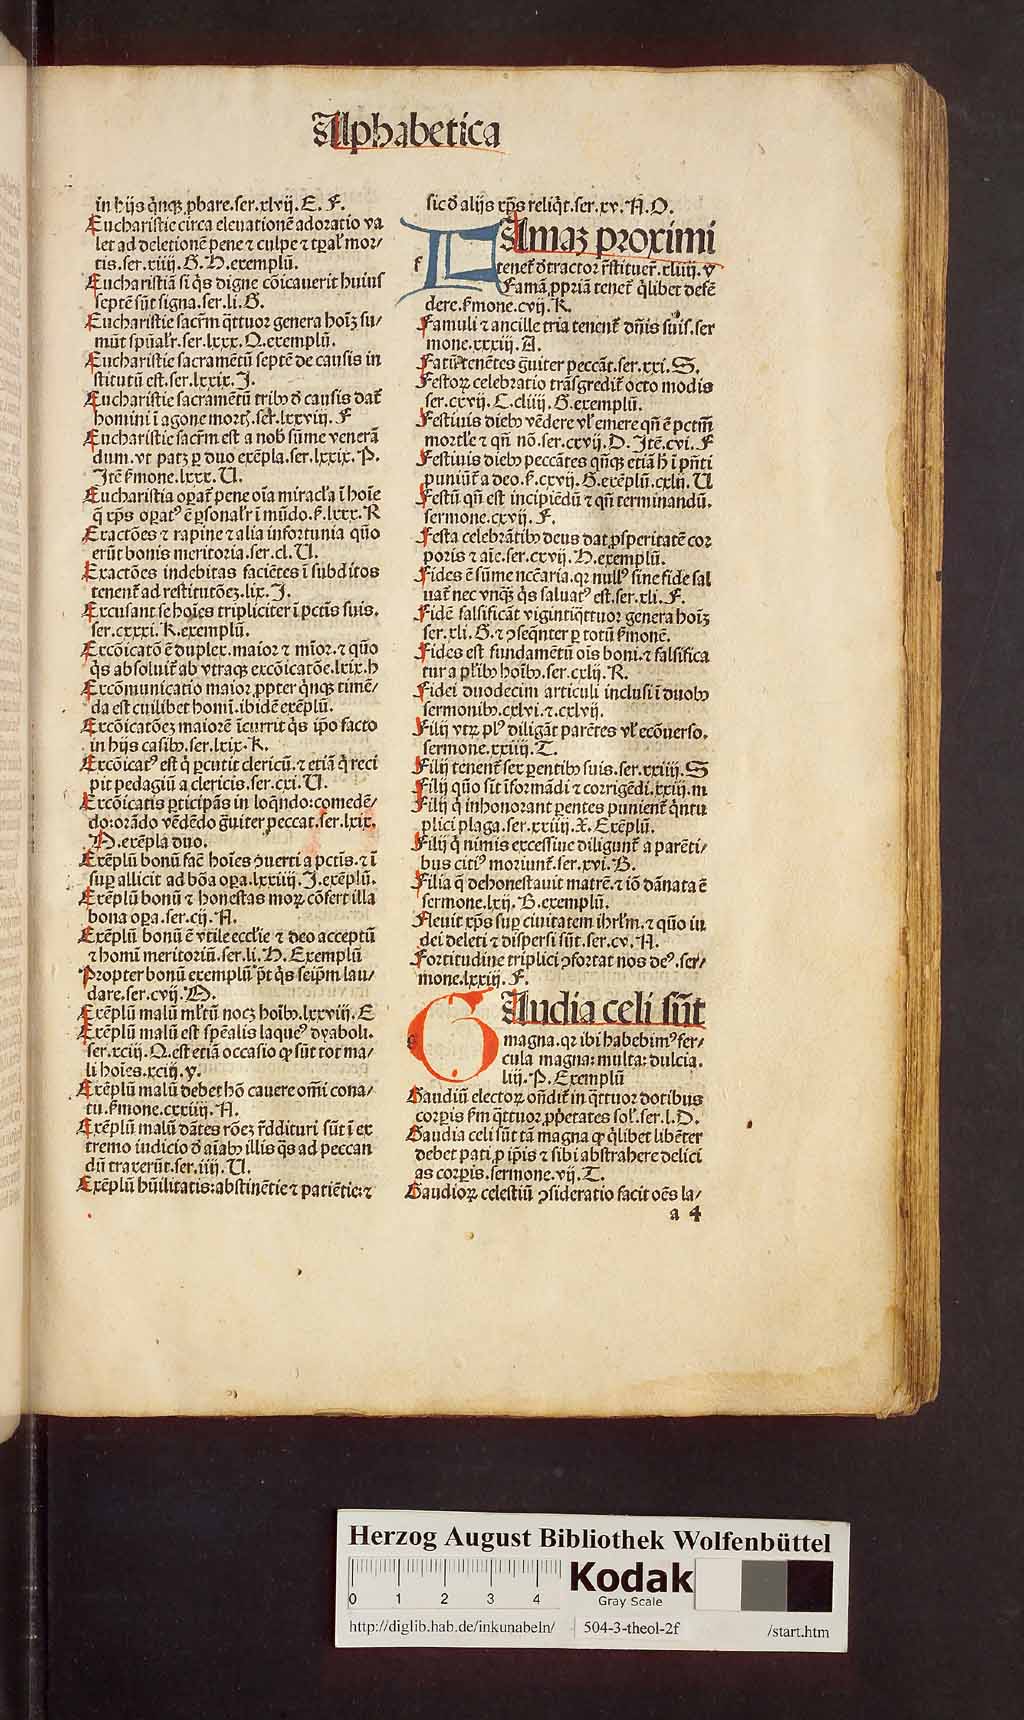 Alphabetica
in hijs q̄nqꝫ ꝓbare.ser.xlvij. E. F.
Eucharistie circa eleuationē adoratio va
let ad deletionē pene ⁊ culpe ⁊ tꝑal' mor/
tis.ser.xiiij. G. H. exemplū.
Eucharistiā si q̇s digne cōicauerit huius
septē sūt signa.ser.li. G.
Eucharistie sacr̄m q̄ttuor genera hoīꝫ su/
mūt spūal'r.ser.lxxx. Q. exemplū.
Eucharistie sacramētū septē de causis in
stitutū est.ser.lxxix. J.
Eucharistie sacramētū tribꝰ ō causis dat̄
homini ī agone mort̄.ser.lxxviij. F
Eucharistie sacr̄m est a nob̄ sūme venerā
dum.vt patꝫ ꝑ duo exēpla.ser.lxxix. P.
Jtē s̄mone.lxxx. U.
Eucharistia oꝑat̄ pene oīa miracl'a ī hoīe
q̄ xp̄s oꝑatꝰ ē ꝑsonal'r ī mūdo.s̄.lxxx. R
Exactōes ⁊ rapine ⁊ alia infortunia quō
erūt bonis meritoria.ser.cl. U.
Exactōes indebitas faciētes ī subditos
tenent̄ ad restitutōeꝫ.lix. J.
Excusant se hoīes tripliciter ī pctīs suis.
ser.cxxxi. K. exemplū.
Excōicatō ē duplex.maior ⁊ mīor.⁊ quō
q̇s absoluit̄ ab vtraqꝫ excōicatōe.lxix. h
Excōmunicatio maior ꝓpter q̄nqꝫ timē/
da est cuilibet homī.ibidē exēplū.
Excōicatōeꝫ maiorē īcurrit q̇s ip̄o facto
in hijs casibꝰ.ser.lxix. K.
Excōicatꝰ est q̇ ꝑcutit clericū.⁊ etiā q̇ reci
pit pedagiū a clericis.ser.cxi. U.
Excōicatis ꝑticipās in loq̄ndo:comedē/
do:orādo vēdēdo ḡuiter peccat.ser.lxix.
M. exēpla duo.
Exēplū bonū facē hoīes ꝯuerti a pctīs.⁊ ī
suꝑ allicit ad bōa oꝑa.lxxiiij. J. exēplū.
Exēplū bonū ⁊ honestas moꝝ cōfert illa
bona oꝑa.ser.cij. A.
Exēplū bonū ē vtile eccl'ie ⁊ deo acceptū
⁊ homī meritoriū.ser.li. H. Exemplū
Propter bonū exemplū p̄t q̇s seip̄m lau/
dare.ser.cvij. M.
Exēplū malū ml'tū nocꝫ hoībꝰ.lxxviij. E
Exēplū malū est spēalis laqueꝰ dyaboli.
ser.xciij. Q. est etiā occasio ꝙ sūt tot ma/
li hoīes.xciij. v.
Exēplū malū debet hō cauere omī cona/
tu.s̄mone.cxxiiij. A.
Exēplū malū dātes rōeꝫ r̄ddituri sūt ī ex
tremo iudicio ō aīabꝰ illis q̄s ad peccan
dū traxerūt.ser.iiij. U.
Exēplū hūilitatis:abstinētie ⁊ patiētie:⁊
sic ō alijs xp̄s reliq̇t.ser.xv. A. O.
f
Famaꝫ proximi
tenet̄ ōtractor r̄stituer̄.xliiij. v
Famā ꝓpriā tenet̄ q̇libet defē
dere.s̄mone.cvij. K.
Famuli ⁊ ancille tria tenent̄ dn̄is suis.ser
mone.xxxiij. A.
Fatū tenētes ḡuiter peccāt.ser.xxi. S.
Festoꝝ celebratio trāsgredit̄ octo modis
ser.cxvij. C. cliiij. G. exemplū.
Festiuis diebꝰ vēdere vl' emere qn̄ ē pctm̄
mortl'e ⁊ qn̄ nō.ser.cxvij. D. Jtē.cvi. F
Festiuis diebꝰ peccātes qn̄qꝫ etiā h̄ ī pn̄ti
puniūt̄ a deo.s̄.cxvij. G. exēplū.cxlij. U
Festū qn̄ est incipiēdū ⁊ qn̄ terminandū.
sermone.cxvij. F.
Festa celebrātibꝰ deus dat ꝓsperitatē cor
poris ⁊ aīe.ser.cxvij. H. exemplū.
Fides ē sūme nc̄cāria.qꝛ nullꝰ sine fide sal
uat̄ nec vnqꝫ q̇s saluatꝰ est.ser.xli. F.
Fidē falsificāt vigintiq̄ttuor genera hoīꝫ
ser.xli. G. ⁊ ꝯseq̄nter ꝑ totū s̄monē.
Fides est fundamētū oīs boni.⁊ falsifica
tur a pl'ibꝰ hoībꝰ.ser.cxlij. R.
Fidei duodecim articuli inclusi ī duobꝰ
sermonibꝰ.cxlvi.⁊.cxlvij.
Filij vtꝝ plꝰ diligāt parētes vl' ecōuerso.
sermone.xxiiij. T.
Filij tenent̄ sex ꝑentibꝰ suis.ser.xxiiij. S
Filij quō sīt īformādi ⁊ corrigēdi.xxiij. m
Filij q̇ inhonorant ꝑentes punient̄ q̇ntu
plici plaga.ser.xxiiij. X. Exēplū.
Filij q̇ nimis excessiue diligunt̄ a parēti/
bus citiꝰ moriunt̄.ser.xvi. B.
Filia q̄ dehonestauit matrē.⁊ iō dānata ē
sermone.lxij. B. exemplū.
Fleuit xp̄s suꝑ ciuitatem ihrl'm.⁊ quō iu
dei deleti ⁊ dispersi sūt.ser.cv. A.
Fortitudine triplici ꝯfortat nos deꝰ.ser/
mone.lxxiij. F.
g
Gaudia celi sūt
magna.qꝛ ibi habebimꝰ fer/
cula magna:multa:dulcia.
liij. P. Exemplū
Gaudiū electoꝝ on̄dit̄ in q̄ttuor dotibus
corꝑis s̄m q̄ttuor ꝓp̄etates sol'.ser.l. D.
Gaudia celi sūt tā magna ꝙ q̇libet libēter
debet pati ꝓ ip̄is ⁊ sibi abstrahere delici
as corꝑis.sermone.vij. T.
Gaudioꝝ celestiū ꝯsideratio facit oēs la/
a 4
Herzog August Bibliothek Wolfenbüttel
0 1 2 3 4
Kodak
Gray Scale
http://diglib.hab.de/inkunabeln/ 504-3-theol-2f /start.htm